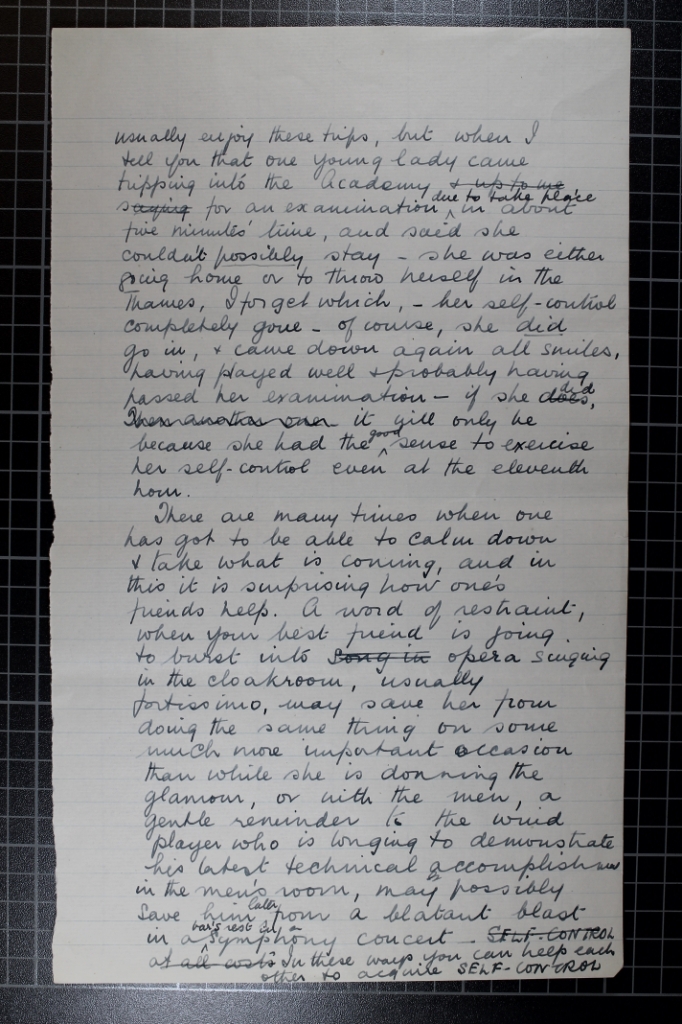 usually enjoy these trips, but when I
tell you that one young lady came
tripping into the Academy & up to me
due to take place
saying for an examination in about
five minutes' time, and said she
couldn't possibly stay – she was either
going home or to throw herself in the
Thames, I forget which, – her self-control
completely gone – of course, she did
go in, & came down again all smiles,
having played well & probably having
passed her examination – if she does, did
Then another one it will only be
because she had the good sense to exercise
her self-control even at the eleventh
hour.
There are many times when one
has got to be able to calm down
& take what is coming, and in
this it is surprising how one's
friends help. A word of restraint,
when your best friend is going
to burst into song in opera singing
in the cloakroom, usually
fortissimo, may save her from
doing the same thing on some
much more important occasion
than while she is donning the
glamour, or with the men, a
gentle reminder to the wind
player who is longing to demonstrate
his latest technical accomplishment
in the men's room, may possibly
save him later from a blatant blast
bar's rest in a
in a symphony concert. SELF-CONTROL
at all costs In these ways you can help each
other to acquire SELF-CONTROL